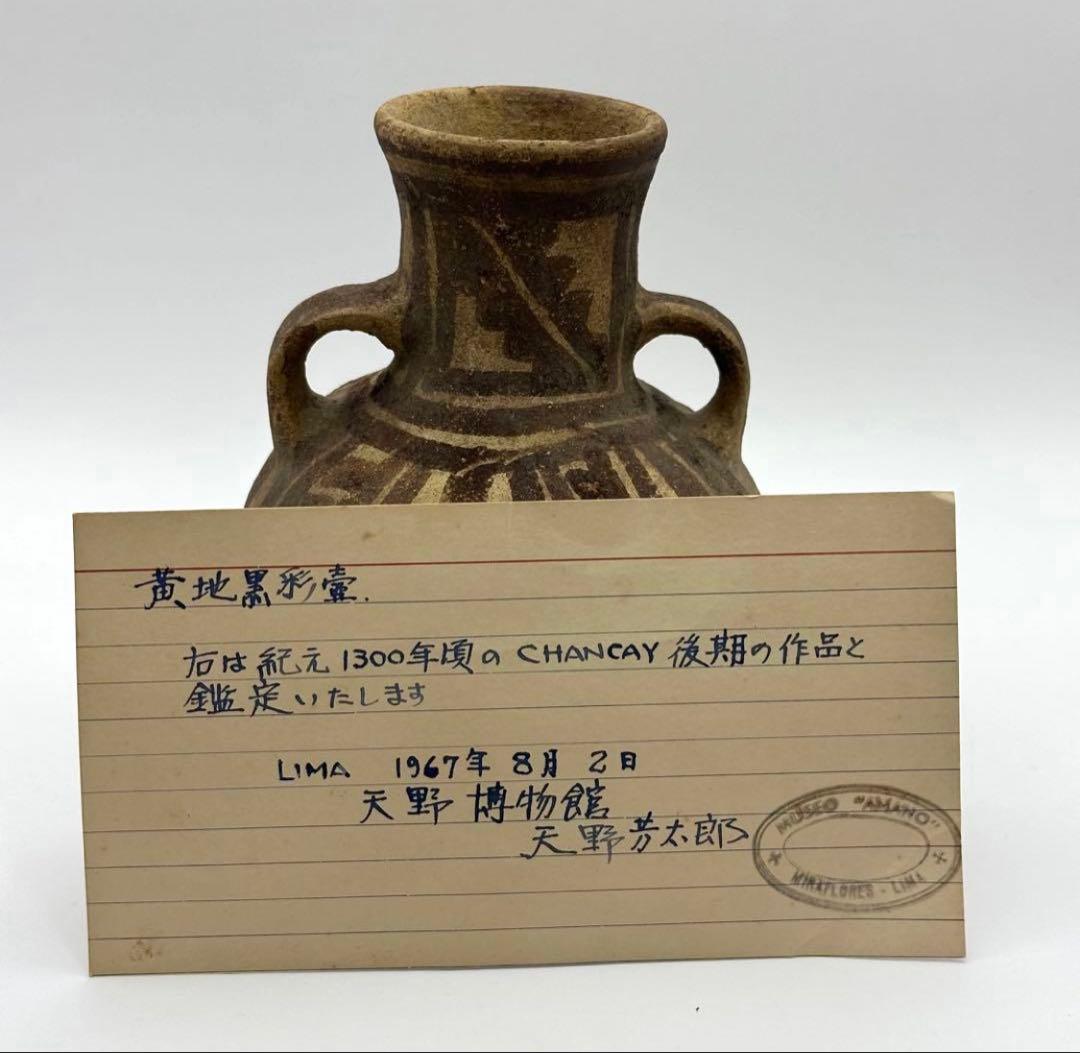 黄地黒彩壷.
右は紀元1300年頃のCHANCAY後期の作品と
鑑定いたします
LIMA 1967年8月2日
天野博物館
天野芳太郎
MUSEO "AMANO"
MIRAFLORES - LIMA